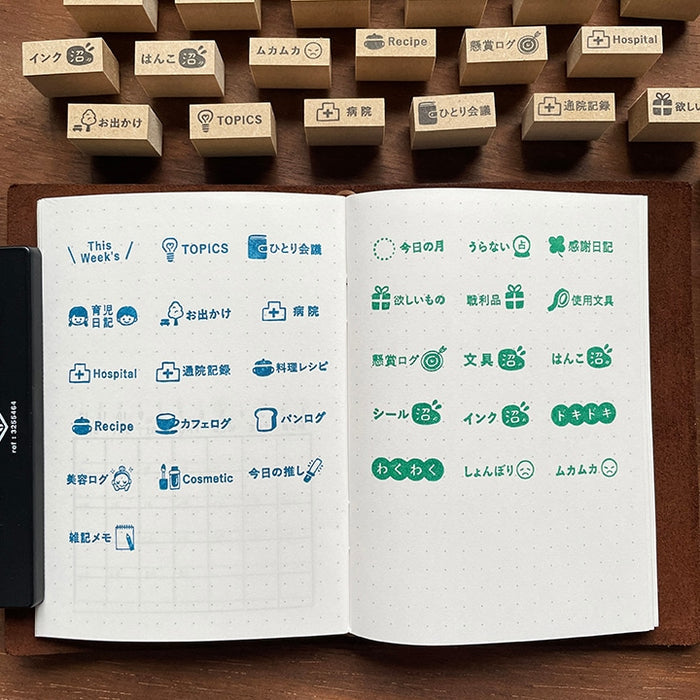 インク沼
はんこ沼
ムカムカ
Recipe
懸賞ログ
Hospital
お出かけ
TOPICS
病院
ひとり会議
通院記録
欲しい
ref : 3255464
This
Week's
TOPICS
ひとり会議
育児
日記
お出かけ
病院
Hospital
通院記録
料理レシピ
Recipe
カフェログ
パンログ
美容ログ
Cosmetic
今日の推し
雑記メモ
今日の月
うらない 占
感謝日記
欲しいもの
戦利品
使用文具
懸賞ログ
文具沼
はんこ沼
シール沼
インク沼
ドキドキ
わくわく
しょんぼり
ムカムカ